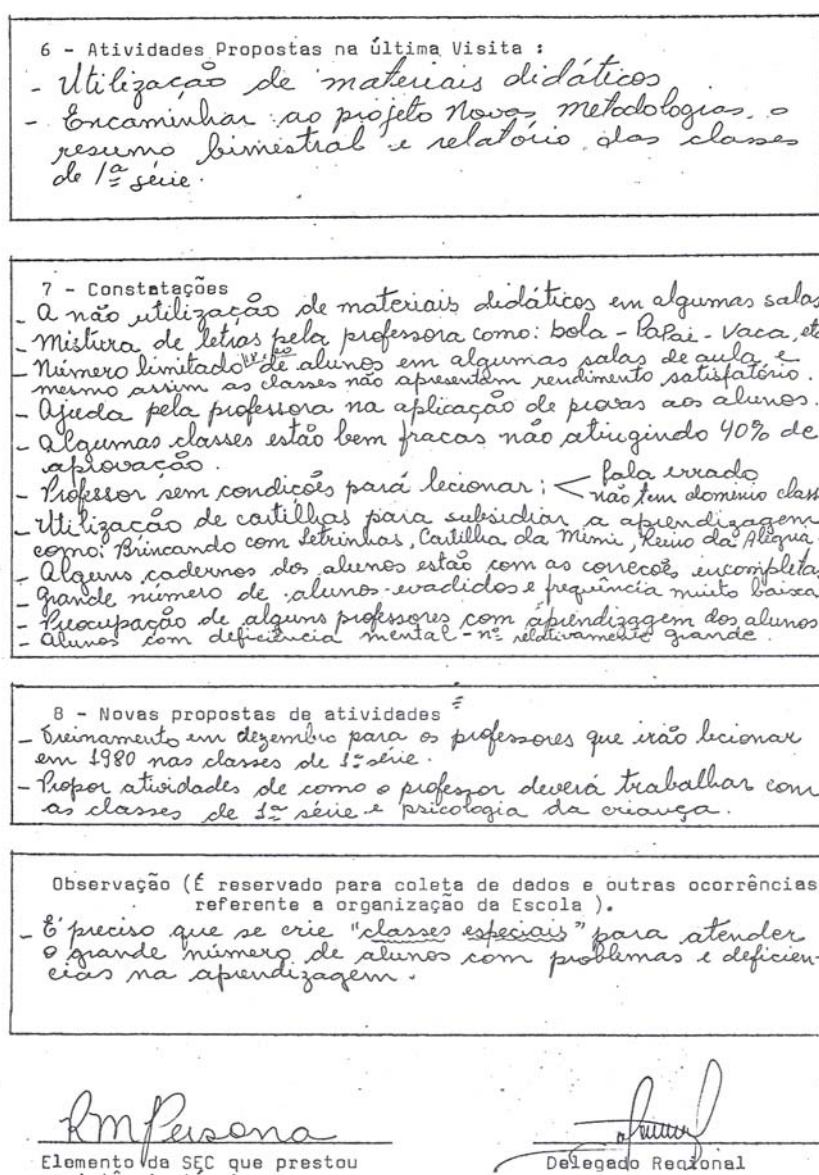 6 - Atividades Propostas na última Visita :
- Utilização de materiais didáticos
- Encaminhar ao projeto Novas metodologias, o
resumo bimestral e relatório das classes
de 1ª série.
7 - Constatações
- A não utilização de materiais didáticos em algumas salas
- Mistura de letras pela professora como: bola - PaPai - Vaca, etc
- Número limitado de alunos em algumas salas de aula e
mesmo assim as classes não apresentam rendimento satisfatório.
- Ajuda pela professora na aplicação de provas aos alunos.
- Algumas classes estão bem fracas não atingindo 40% de
aprovação.
- Professor sem condições para lecionar: < fala errado
não tem dominio class
- Utilização de cartilhas para subsidiar a aprendizagem
como: Brincando com Letrinhas, Cartilha da Mimi, Reino da Alegria.
- Alguns cadernos dos alunos estão com as correções incompletas
- Grande número de alunos evadidos e frequência muito baixa
- Preocupação de alguns professores com aprendizagem dos alunos
- Alunos com deficiência mental - nº relativamente grande.
8 - Novas propostas de atividades
- Treinamento em dezembro para os professores que irão lecionar
em 1980 nas classes de 1ª série.
- Propor atividades de como o professor deverá trabalhar com
as classes de 1ª série e psicologia da criança.
Observação (É reservado para coleta de dados e outras ocorrências
referente a organização da Escola ).
- É preciso que se crie "classes especiais" para atender
o grande número de alunos com problemas e deficiên-
cias na aprendizagem.
RM Persona
Elemento da SEC que prestou
Delegado Regional